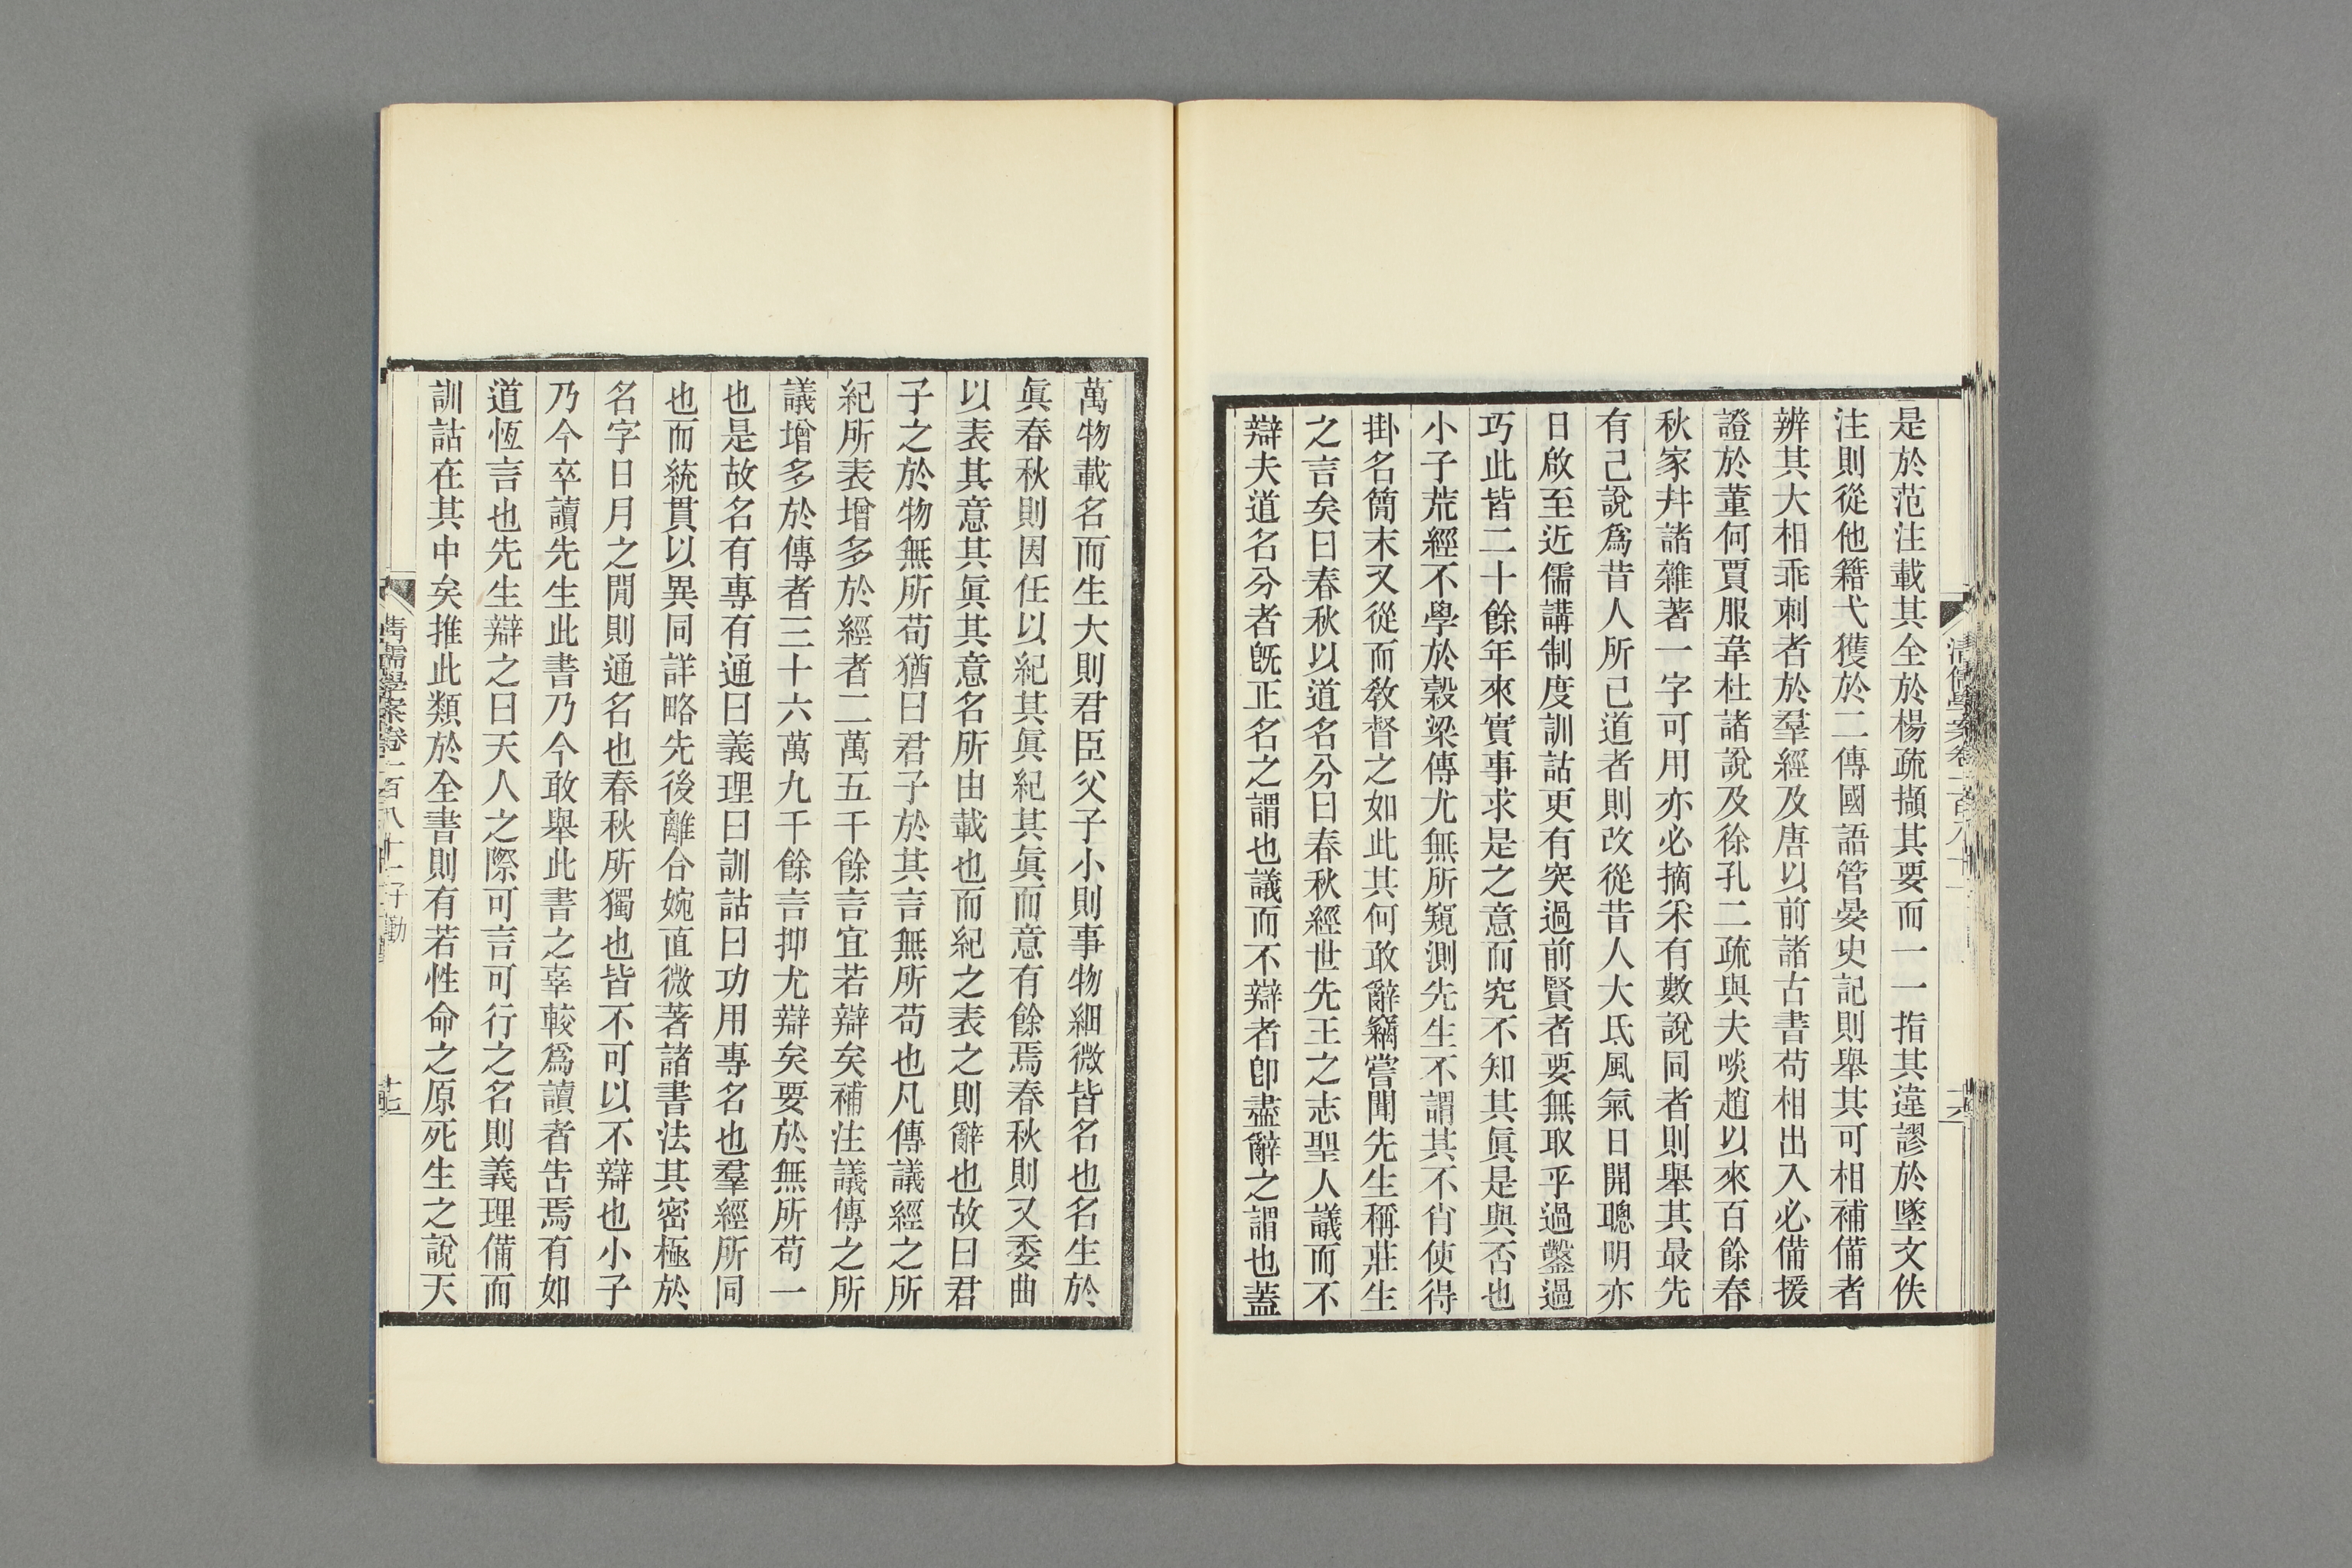 是於范注載其全於楊疏擷其要而一一指其違謬於墜文佚
注則從他籍弋獲於二傳國語管晏史記則舉其可相補備者
辨其大相乖刺者於羣經及唐以前諸古書苟相出入必備援
證於董何賈服韋杜諸說及徐孔二疏與夫啖趙以來百餘春
秋家幷諸雜著一字可用亦必摘釆有數說同者則舉其最先
有己說爲昔人所已道者則改從昔人大氐風氣日開聰明亦
日啟至近儒講制度訓詁更有突過前賢者要無取乎過鑿過
巧此皆二十餘年來實事求是之意而究不知其眞是與否也
小子荒經不學於穀梁傳尤無所窺測先生不謂其不肖使得
掛名簡末又從而敎督之如此其何敢辭竊嘗聞先生稱莊生
之言矣曰春秋以道名分曰春秋經世先王之志聖人議而不
辯夫道名分者旣正名之謂也議而不辯者卽盡辭之謂也蓋
萬物載名而生大則君臣父子小則事物細微皆名也名生於
眞春秋則因任以紀其眞紀其眞而意有餘焉春秋則又委曲
以表其意其眞其意名所由載也而紀之表之則辭也故曰君
子之於物無所苟猶曰君子於其言無所苟也凡傳議經之所
紀所表增多於經者二萬五千餘言宜若辯矣補注議傳之所
議增多於傳者三十六萬九千餘言抑尤辯矣要於無所苟一
也是故名有專有通曰義理曰訓詁曰功用專名也羣經所同
也而統貫以異同詳略先後離合婉直微著諸書法其密極於
名字日月之閒則通名也春秋所獨也皆不可以不辯也小子
乃今卒讀先生此書乃今敢舉此書之辜較爲讀者告焉有如
道恆言也先生辯之曰天人之際可言可行之名則義理備而
訓詁在其中矣推此類於全書則有若性命之原死生之說天